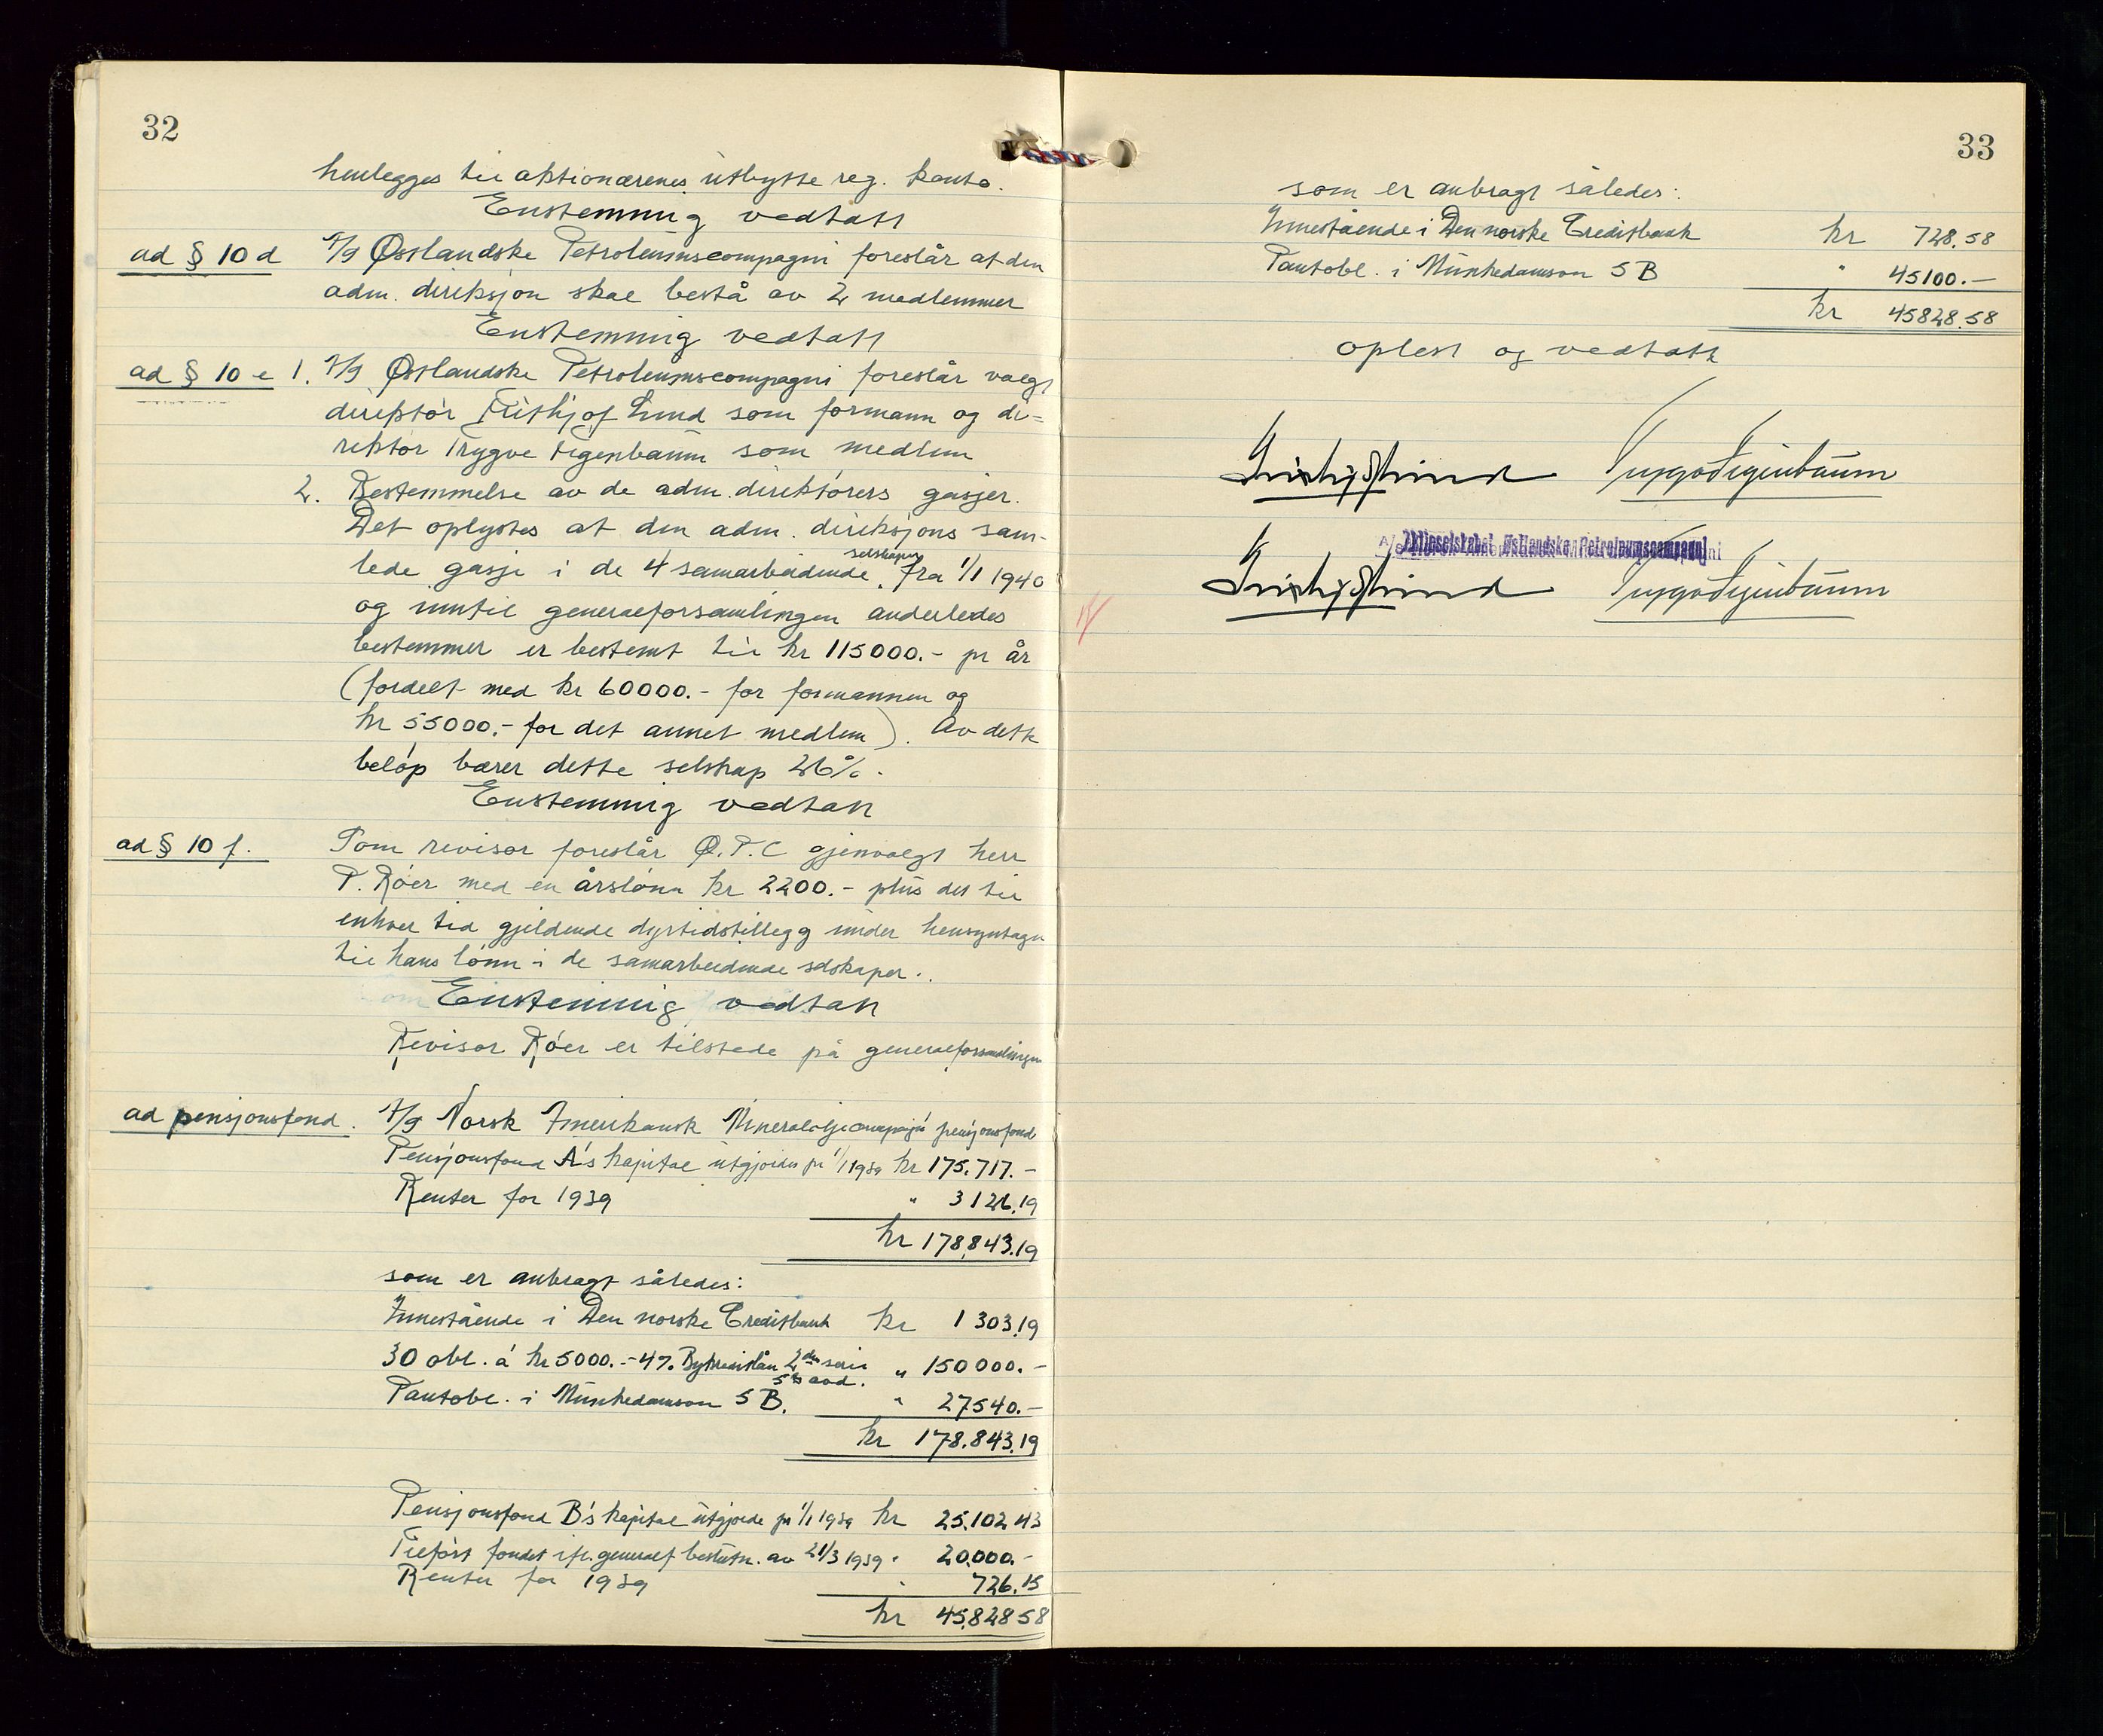 32
henlegges til aktionærenes utbytte reg. konto.
Enstemmig vedtatt
ad § 10 d A/S Østlandske Petroleumscompagni foreslår at den
adm. direksjon skal bestå av 2 medlemmer
Enstemmig vedtatt
ad § 10 e 1. A/S Østlandske Petroleumscompagni foreslår valgt
direktør Frithjof Lund som formann og di=
rektør Trygve Figenbaum som medlem
2. Bestemmelse av de adm. direktørers gasjer.
Det oplystes at den adm. direksjons sam-
lede gasje i de 4 samarbeidende selskaper fra 1/1 1940
og inntil generalforsamlingen anderledes
bestemmer er bestemt til kr 115000.- pr år
(fordelt med kr 60000.- for formannen og
kr 55000.- for det annet medlem). Av dette
beløp bærer dette selskap 26%.
Enstemmig vedtatt
ad § 10 f. Som revisor foreslår Ø.P.C gjenvalgt herr
P. Røer med en årslønn kr 2200.- plus det til
enhver tid gjeldende dyrtidstillegg under hensyntagen
til hans lønn i de samarbeidende selskaper.
Enstemmig vedtatt
Revisor Røer er tilstede på generalforsamlingen
ad pensjonsfond. A/S Norsk Amerikansk Mineraloljecompagni pensjonsfond
Pensjonsfond A's kapital utgjorde pr 1/1 1939 kr 175.717.-
Renter for 1939 " 3126.19
kr 178,843.19
som er anbragt således:
Innestående i Den norske Creditbank kr 1 303.19
30 obl. á kr 5000.- 4% Bykredittlån 2den serie 5te avd. " 150000.-
Pantobl. i Munkedamsvn 5 B. " 27540.-
kr 178.843.19
Pensjonsfond B's kapital utgjorde pr 1/1 1939 kr 25.102 43
Tilført fondet ifl. generalf beslutn. av 21/3 1939 " 20.000.-
Renter for 1939 " 726.15
kr 45,828 58
33
som er anbragt således:
Innestående i Den norske Creditbank kr 728.58
Pantobl. i Munkedamsvn 5 B " 45100.-
kr 45828.58
oplest og vedtatt
Frithjof Lund Trygve Figenbaum
Aktieselskabet Østlandske Petroleumscompagni
Frithjof Lund Trygve Figenbaum